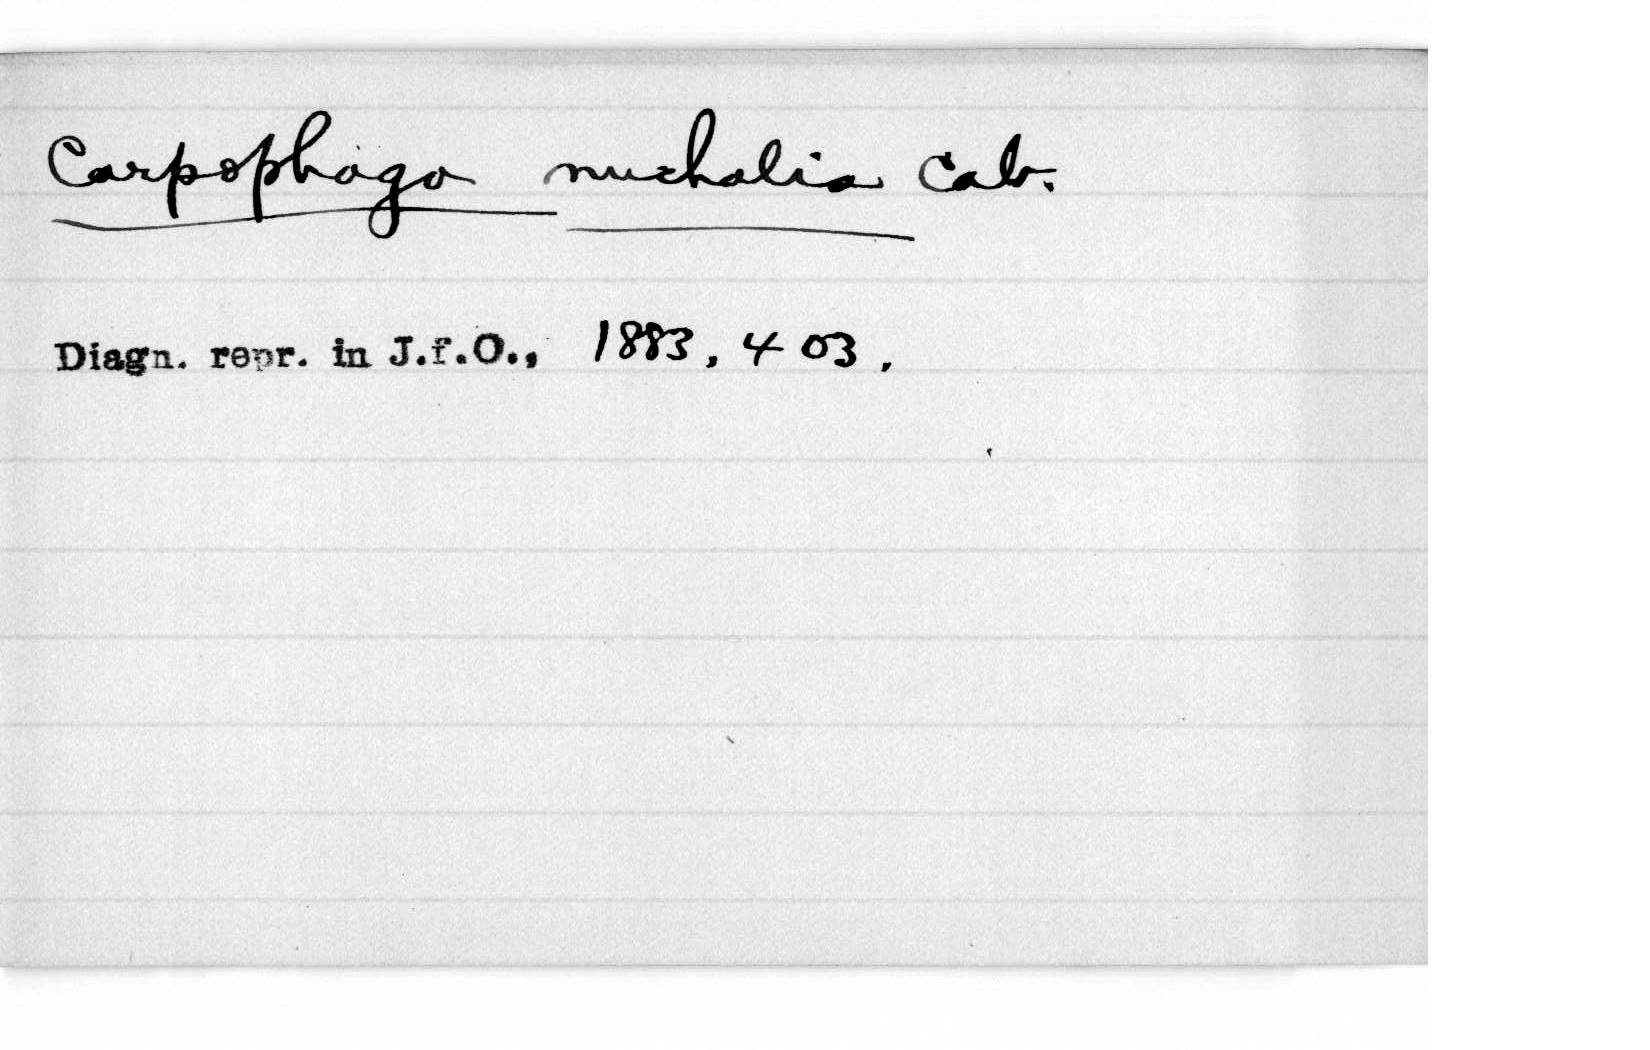 Carpophaga nuchalis Cab.
Diagn. repr. in J.f.O., 1883, 403.